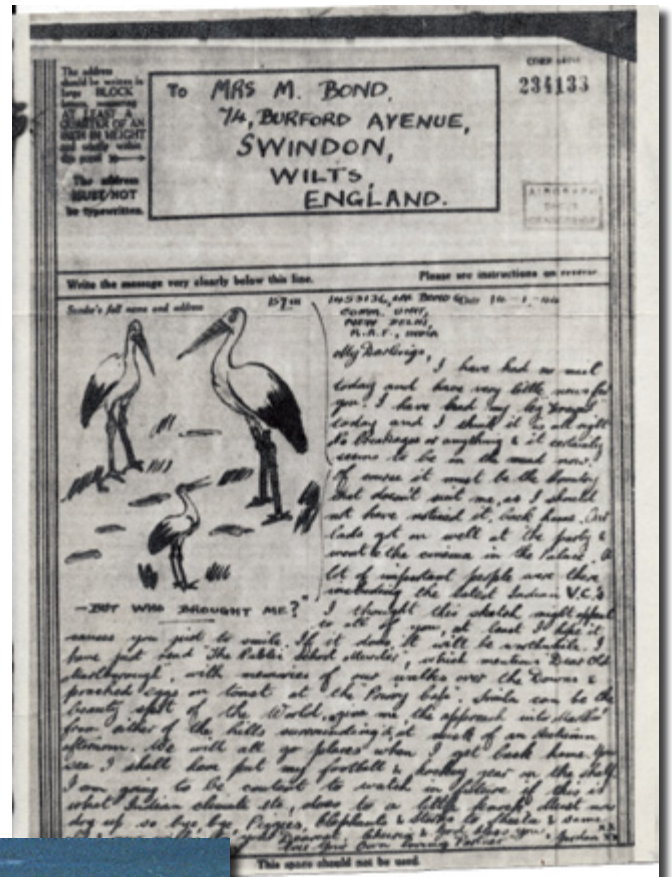 The address
should be written in
large BLOCK
letters
AT LEAST A
QUARTER OF AN
INCH IN HEIGHT
and wholly within
this panel
The address
MUST NOT
be typewritten.
To MRS M. BOND,
74, BURFORD AVENUE,
SWINDON,
WILTS,
ENGLAND.
234133
Write the message very clearly below this line.
Please see instructions on reverse.
Sender's full name and address
COMM. UNIT,
NEW DELHI,
R.A.F., INDIA
My Darlings,
I have had no mail
today and have very little news for
you. I have had my leg
today and I think it is all right
No breakages or anything & it certainly
seems to be in the
Of course it must be the
that doesn't suit me, as I should
not have noticed it, back home.
lads got on well at the party &
went to the cinema in the Palace. A
lot of important people were there
including the latest Indian V.C.'s
I thought this sketch might appeal
to all of you, at least I hope it
—BUT WHO BROUGHT ME?"
causes you just to smile. If it does it will be worthwhile. I
have just read 'The Public School Murder', which mentions 'Dear Old
Marlborough', with memories of our walks over the Downs &
poached eggs on toast at the Cafe. Simla can be the
beauty spot of the World, give me the approach into
from either of the hills surrounding it, at
afternoon. We will all go places when I get back home. You
see I shall have put my football & hockey gear on the shelf
I am going to be content to watch in future if this is
what Indian climate etc, does to a little
so bye, bye, Elephants & Storks to Sheila &
& God bless you
Your Own Loving
This space should not be used.